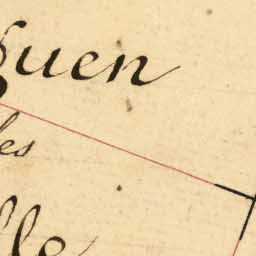 guen
les
lle